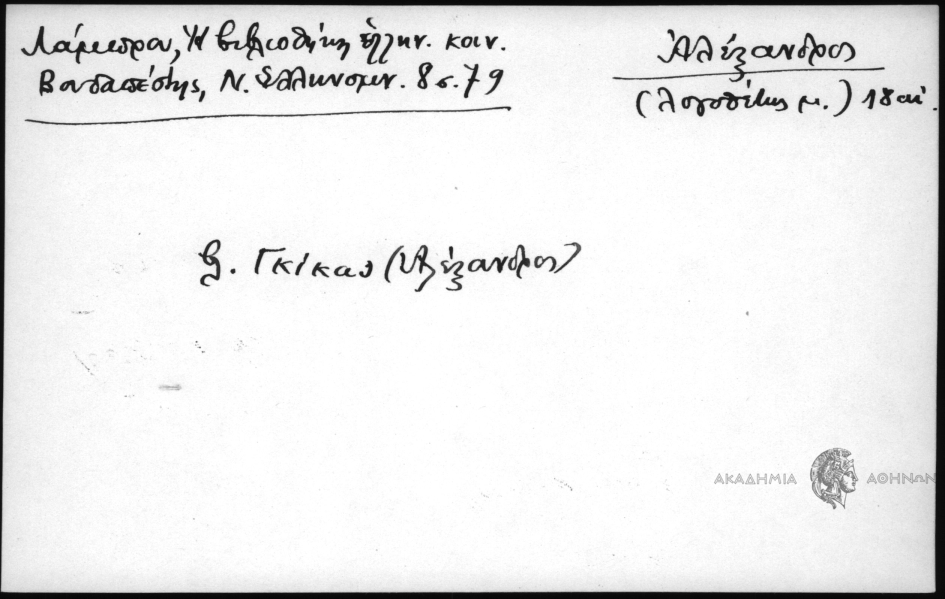 Λάμπρου, Ἡ βιβλιοθήκη ἑλλην. κοιν.
Βουδαπέστης, Ν. Ἑλληνομν. 8 σ. 79
Ἀλέξανδρος
(λογοθέτης μ.) 18 αἰ.
βλ. Γκίκας (Ἀλέξανδρος)
ΑΚΑΔΗΜΙΑ ΑΘΗΝΩΝ